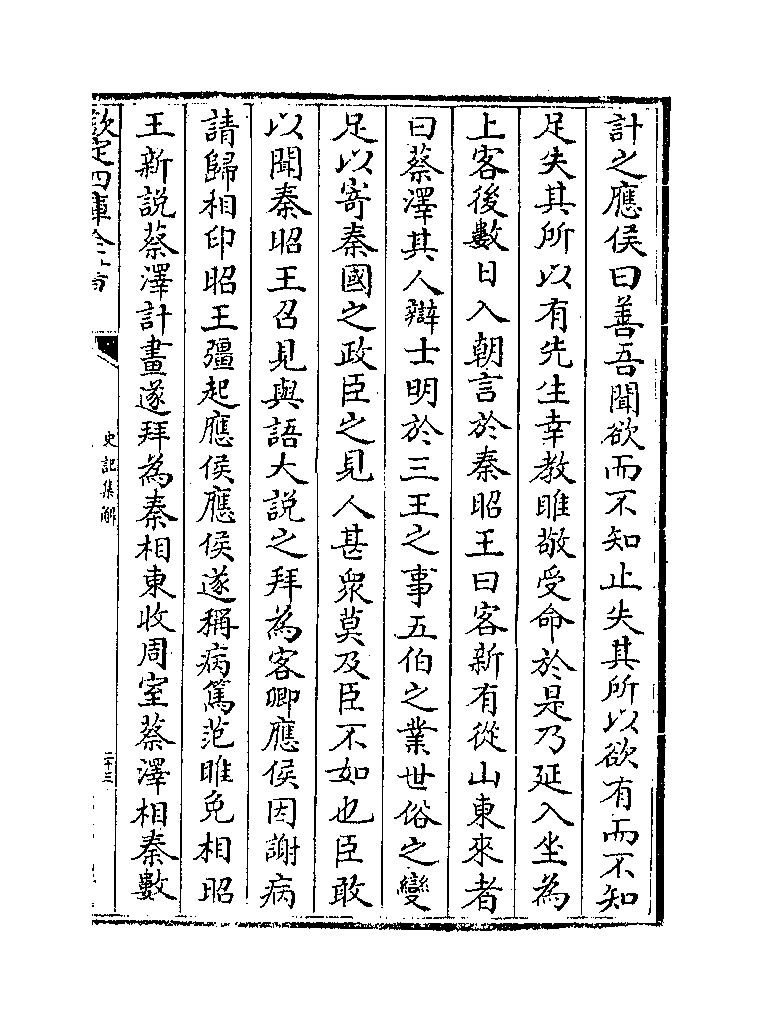 計之應侯曰善吾聞欲而不知止失其所以欲有而不知
足失其所以有先生幸教睢敬受命於是乃延入坐為
上客後數日入朝言於秦昭王曰客新有從山東來者
曰蔡澤其人辯士明於三王之事五伯之業世俗之變
足以寄秦國之政臣之見人甚衆莫及臣不如也臣敢
以聞秦昭王召見與語大說之拜為客卿應侯因謝病
請歸相印昭王彊起應侯應侯遂稱病篤范睢免相昭
王新說蔡澤計畫遂拜為秦相東收周室蔡澤相秦數
欽定四庫全書
史記集解
二十三